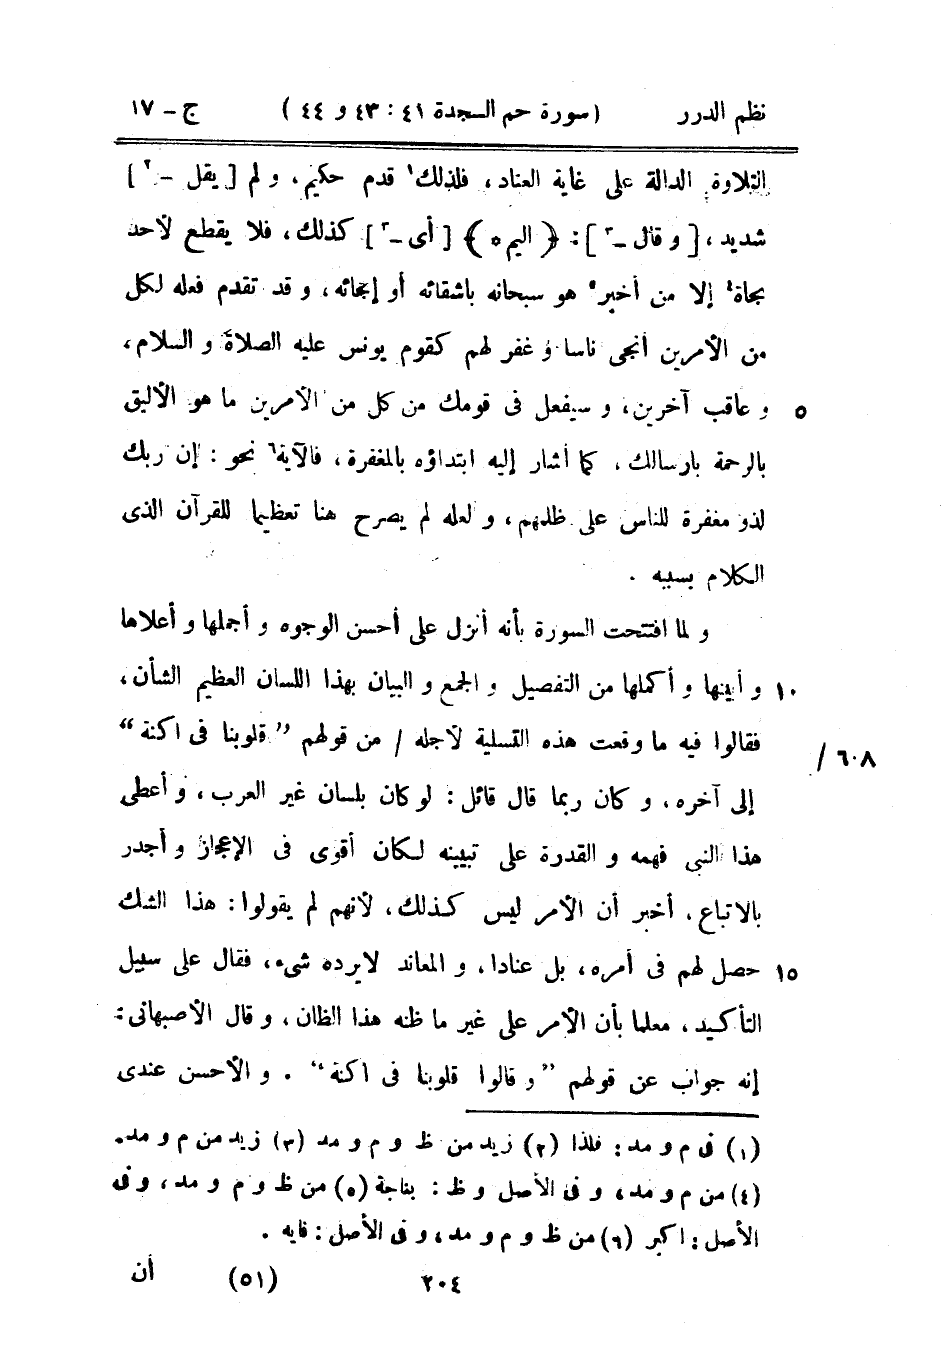 نظم الدرر (سورة حم السجدة ٤١ : ٤٣ و ٤٤) ج – ١٧
التلاوة الدالة على غاية العناد، فلذلك١ قدم حكيم، و لم [ يقل –٢ ]
شديد، [ و قال –٣ ] : ﴿ اليم ٥ ﴾ [ أى –٣ ] كذلك، فلا يقطع لأحد
بجاة٤ إلا من أخبر٥ هو سبحانه باشقائه أو إنجائه، و قد تقدم فعله لكل
من الأمرين أنجى ناسا و غفر لهم كقوم يونس عليه الصلاة و السلام،
٥ و عاقب آخرين، و سيفعل فى قومك من كل من الأمرين ما هو الأليق
بالرحمة بارسالك، كما أشار إليه ابتداؤه بالمغفرة، فالآية٦ نحو : إن ربك
لذو مغفرة للناس على ظلمهم، و لعله لم يصرح هنا تعظيما للقرآن الذى
الكلام بسببه .
و لما افتتحت السورة بأنه أنزل على أحسن الوجوه و أجملها و أعلاها
١٠ و أبينها و أكملها من التفصيل و الجمع و البيان بهذا اللسان العظيم الشأن،
فقالوا فيه ما وقعت هذه التسلية لأجله / من قولهم ” قلوبنا فى اكنة “
/ ٦٠٨
إلى آخره، و كان ربما قال قائل : لو كان بلسان غير العرب، و أعطى
هذا النبى فهمه و القدرة على تبيينه لكان أقوى فى الإعجاز و أجدر
بالاتباع، أخبر أن الأمر ليس كذلك، لأنهم لم يقولوا : هذا الشك
١٥ حصل لهم فى أمره، بل عنادا، و المعاند لا يرده شىء، فقال على سبيل
التأكيد، معلما بأن الأمر على غير ما ظنه هذا الظان، و قال الأصبهانى :
إنه جواب عن قولهم ” و قالوا قلوبنا فى اكنة “ . و الأحسن عندى
(١) فى م و مد : فلذا (٢) زيد من ظ و م و مد (٣) زيد من م و مد.
(٤) من م و مد، و فى الأصل و ظ : بناجة (٥) من ظ و م و مد، و فى
الأصل : اكبر (٦) من ظ و م و مد، و فى الأصل : فايه .
٢٠٤ (٥١) أن